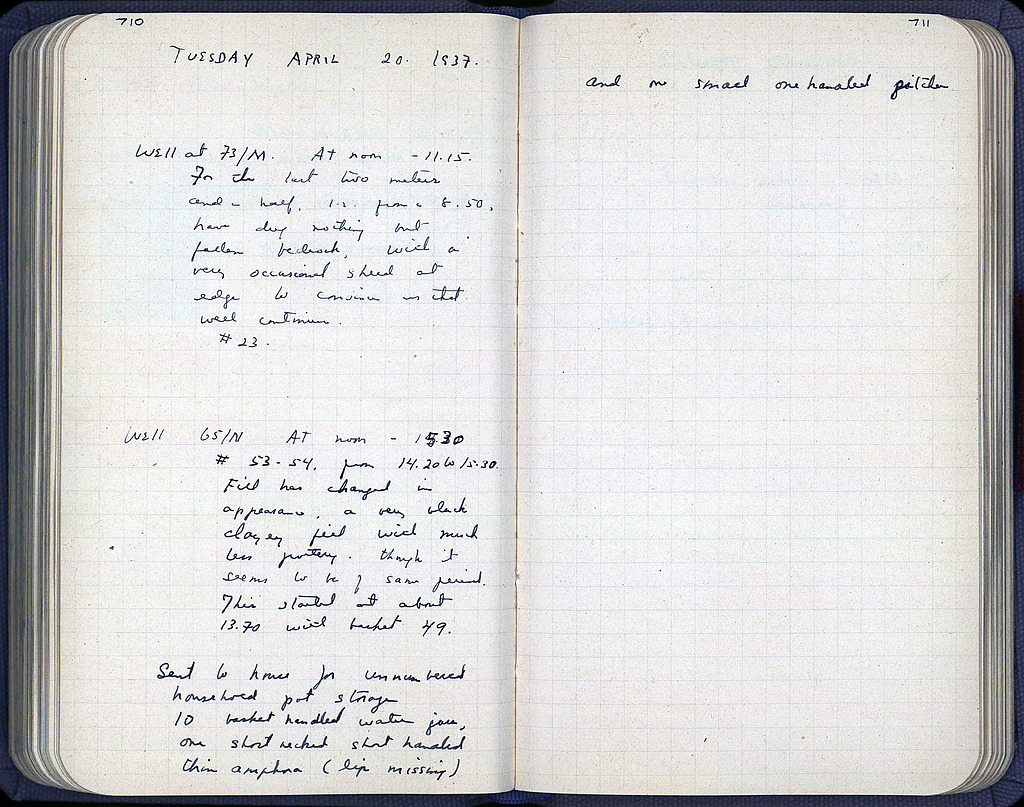 710
TUESDAY APRIL 20. 1937.
Well at 73/M. At noon - 11.15.
For the last two meters
and a half, i.e. from c 8.50,
have dug nothing but
fallen bedrock, with a
very occasional sherd at
edge to convince us that
well continues.
# 23.
Well 65/N At noon - 15.30
# 53-54. from 14.20 to 15.30.
Fill has changed in
appearance, a very black
clayey fill with much
less pottery. though it
seems to be of same period.
This started at about
13.70 with basket 49.
Sent to house for unnumbered
household pot storage
10 basket handled water jars,
one short necked short handled
thin amphora (lip missing)
711
and one small one handled pitcher